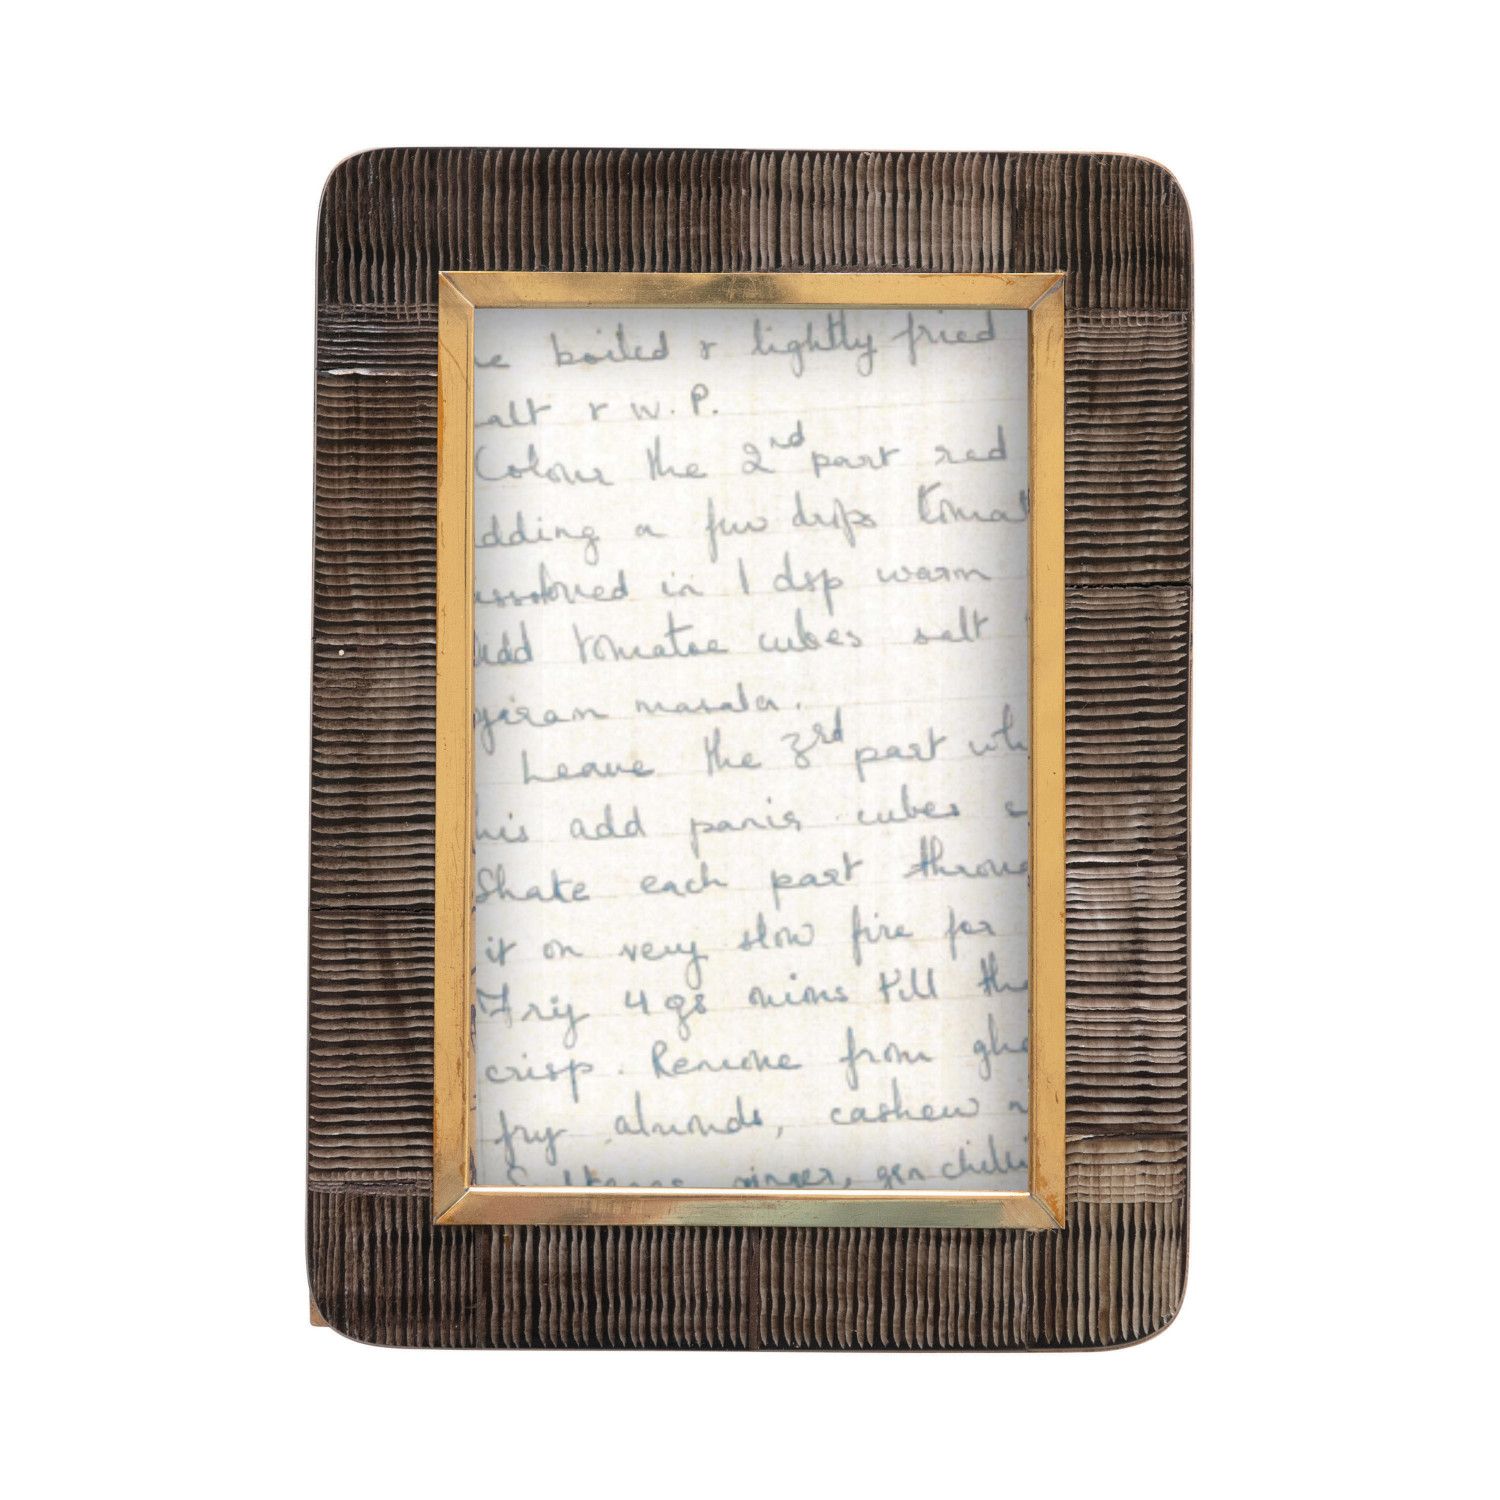 e boiled & lightly fried
alt & W.P.
Colour the 2nd part red
dding a few drops tomat
issolved in 1 dsp warm
add tomatoe cubes salt
giram masala.
Leave the 3rd part whi
his add panir cubes
Shake each part throug
it on very slow fire for
Fry 4 gs onions till the
crisp. Remove from ghe
fry almonds, cashew n
Sultanas ginger, gen chilli